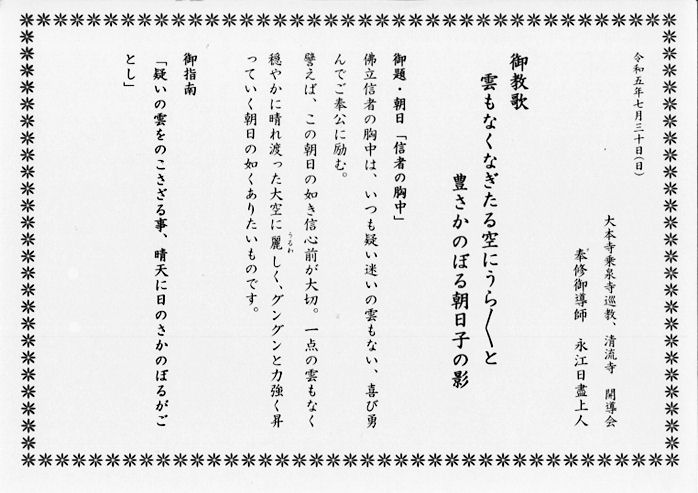 令和五年七月三十日(日)
大本寺乗泉寺巡教、清流寺 開導会
奉修御導師 永江日盡上人
御教歌
雲もなくなぎたる空にうら〱と
豊さかのぼる朝日子の影
御題・朝日「信者の胸中」
佛立信者の胸中は、いつも疑い迷いの雲もない、喜び勇
んでご奉公に励む。
譬えば、この朝日の如き信心前が大切。一点の雲もなく
穏やかに晴れ渡った大空に麗しく、グングンと力強く昇
うるわ
っていく朝日の如くありたいものです。
御指南
「疑いの雲をのこさざる事、晴天に日のさかのぼるがご
とし」